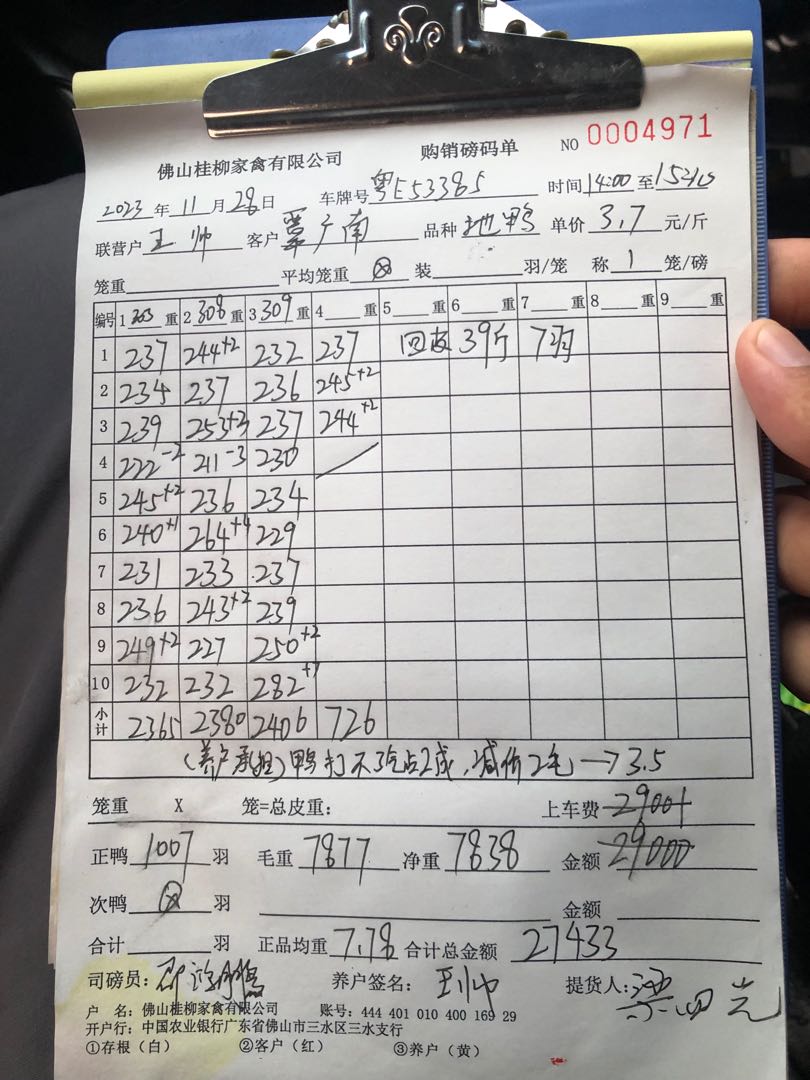 佛山桂柳家禽有限公司 购销磅码单 NO 0004971
2023年11月28日 车牌号粤E53385 时间14:00至
联营户王帅 客户覃广南 品种地鸭 单价3.7元/斤
笼重 平均笼重⊗装 羽/笼 称1笼/磅
编号 1 303重 2 308重 3 309重 4 重 5 重 6 重 7 重 8 重 9 重
1 237 244+2 232 237 回收 39斤 7羽
2 234 237 236 245+2
3 239 253+3 237 244+2
4 222-2 211-3 230
5 245+2 236 234
6 240+1 264+4 229
7 231 233 237
8 236 243+2 239
9 249+2 227 250+2
10 232 232 282+7
小计 2365 2380 2406 726
(养户承担)鸭打不 2成,减价2毛→3.5
笼重 X 笼=总皮重: 上车费 29001
正鸭1007羽 毛重7877 净重7838 金额29000
次鸭⊗羽 金额
合计 羽 正品均重7.78 合计总金额27433
司磅员: 养户签名: 提货人:
户 名:佛山桂柳家禽有限公司 账号:444 401 010 400 169 29
开户行:中国农业银行广东省佛山市三水区三水支行
①存根(白) ②客户(红) ③养户(黄)